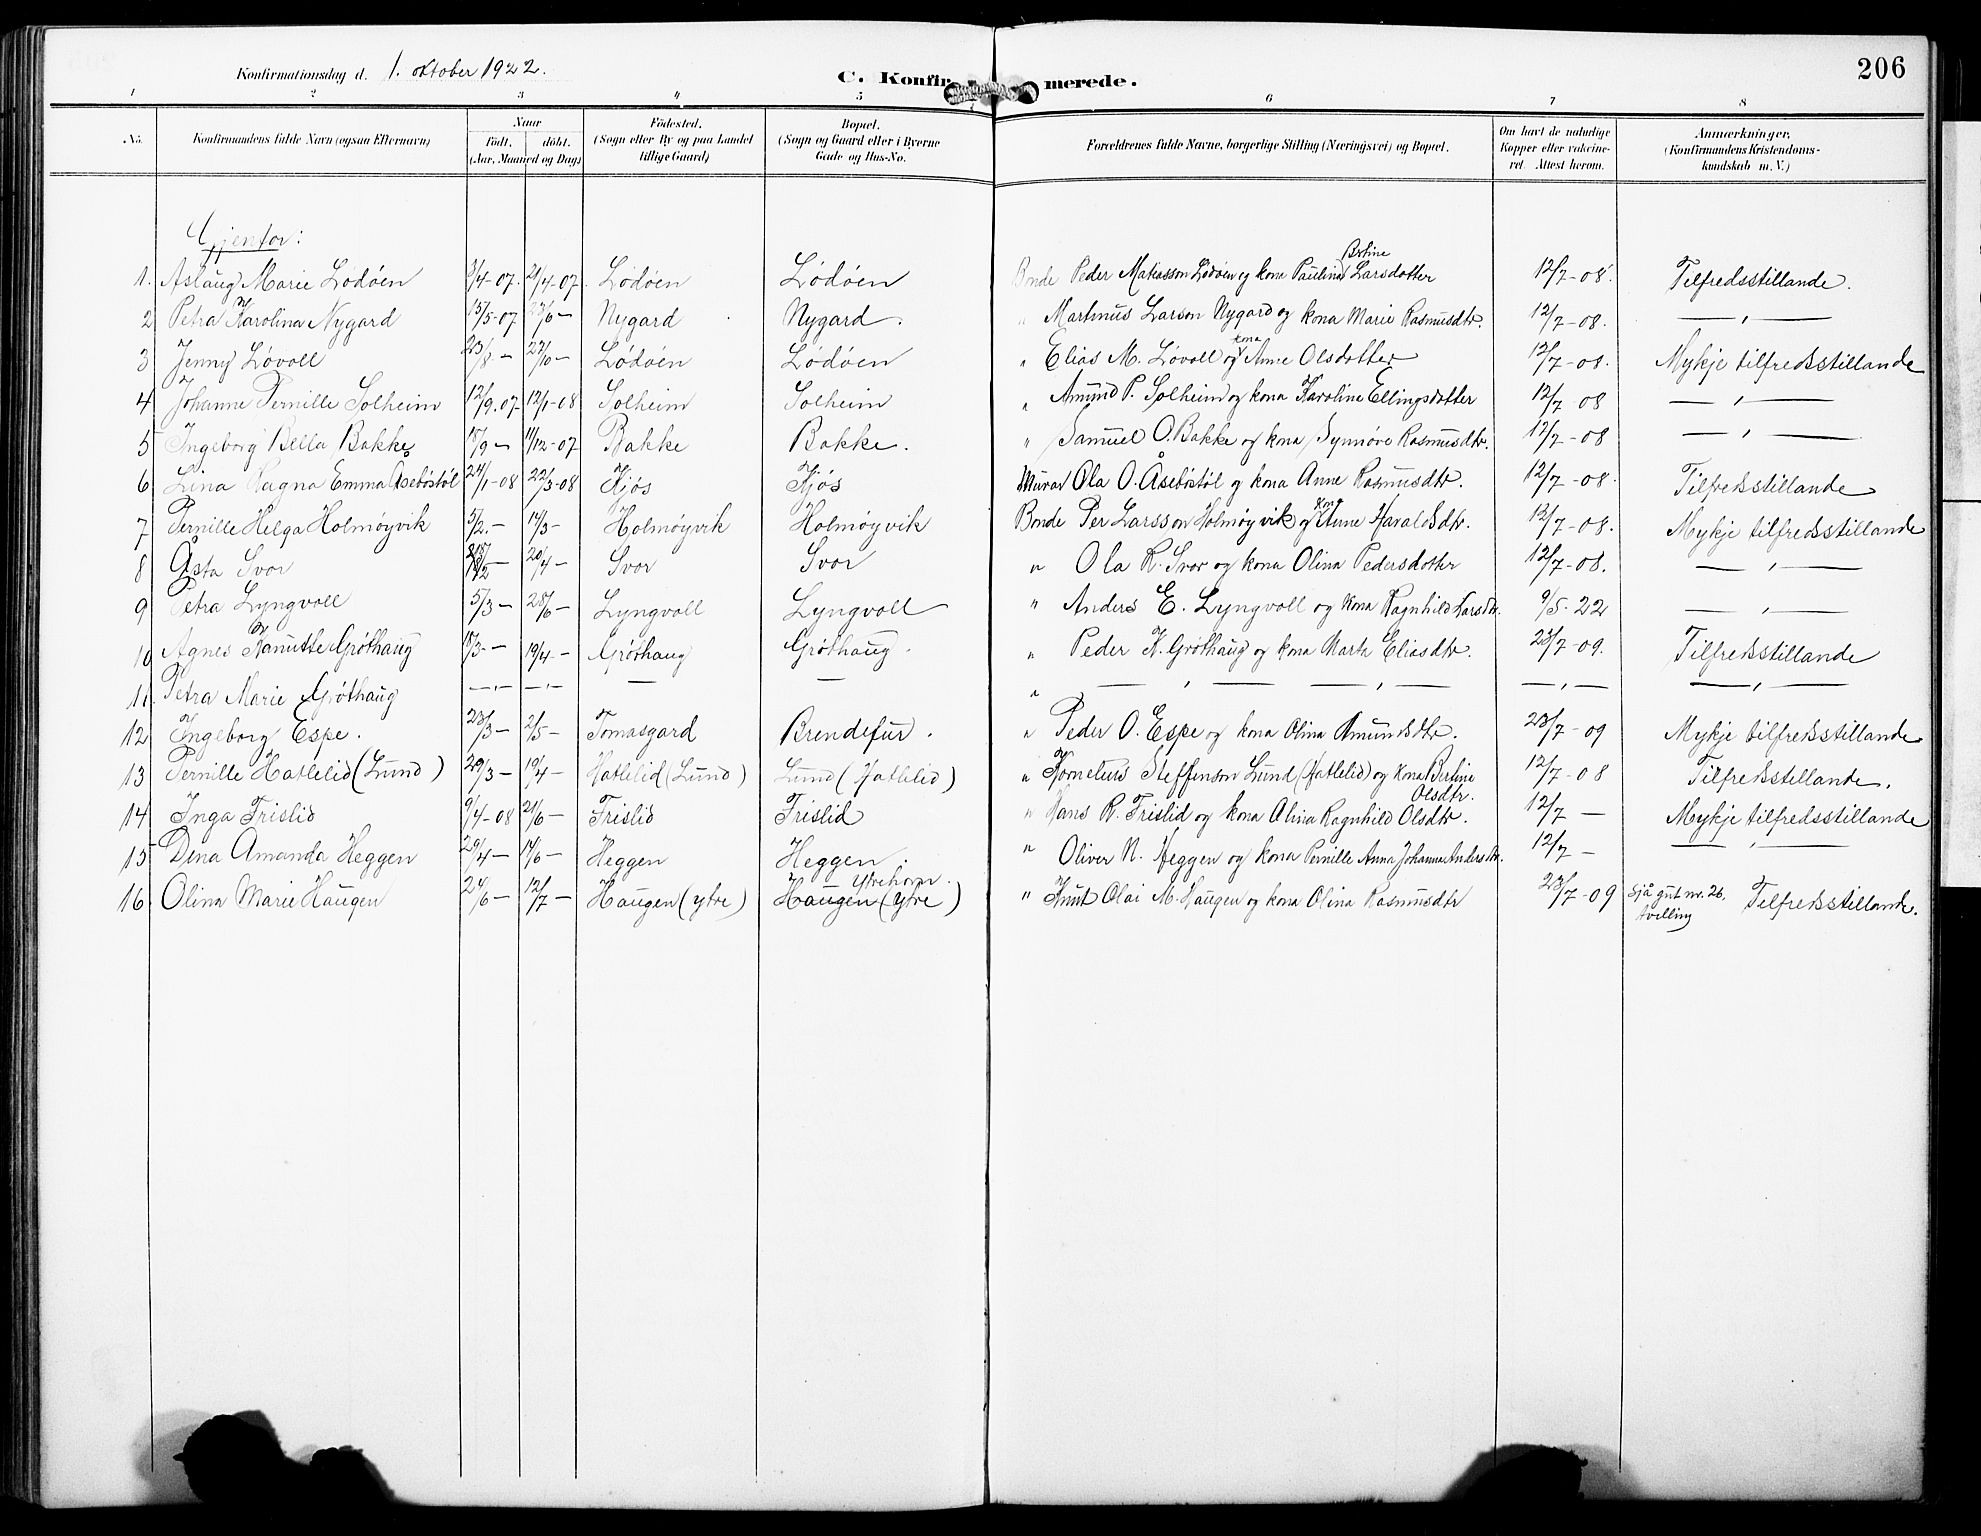 Konfirmationsdag d. 1. oktober 1922.
C. Konfirmerede.
206
1 2 3 4 5 6 7 8
No. Konfirmandens fulde Navn (ogsaa Efternavn) Naar født. døbt. (Aar, Maaned og Dag) Fødested. (Sogn eller By og paa Landet tillige Gaard) Bopæl. (Sogn og Gaard eller i Byerne Gade og Hus-No. Forældrenes fulde Navne, borgerlige Stilling (Næringsvei) og Bopæl. Om havt de naturlige Kopper eller vakcineret. Attest herom. Anmærkninger. (Konfirmandens Kristendomskundskab m. V.)
Gjentor:
1. Aslaug Marie Lødøen 3/4-07. 21/4-07. Lødøen Lødøen Bonde Peder Matiasson Lødøen og kona Paulina Bertine Larsdotter 12/7-08. Tilfredsstillande.
2 Petra Karolina Nygard 13/5-07 23/6 — Nygard Nygard. " Martinus Larson Nygard og kona Marie Rasmusdtr. 12/7-08. — " —
3 Jenny Løvoll 23/8 — Lødøen Lødøen " Elias M. Løvoll og kona Anne Olsdotter 12/7-08. Mykje tilfredsstillande
4 Johanne Pernille Solheim 12/9.07 12/1-08 Solheim Solheim " Amund P. Solheim og kona Karoline Ellingsdotter 12/7-08 — " —
5 Ingeborg Bella Bakke 18/9 — 11/12-07 Bakke Bakke. " Samuel O. Bakke og kona Synnøve Rasmusdtr. 12/7-08 — " —
6 Lina Ragna Emma Åsebøstøl 24/1-08 22/3-08 Kjøs Kjøs Murar Ola O. Åsebøstøl og kona Anne Rasmusdtr. 12/7-08. Tilfredsstillande
7 Pernille Helga Holmøyvik 5/2.- 14/3- Holmøyvik Holmøyvik Bonde Per Larsson Holmøyvik og kona Anne Haraldsdtr. 12/7-08. Mykje tilfredsstillande
8 Åsta Svor 20/4 — Svor Svor " Ola R. Svor og kona Olina Pedersdotter 12/7-08. — " —
9 Petra Lyngvoll 5/3 — 28/6 — Lyngvoll Lyngvoll " Anders E. Lyngvoll og kona Ragnhild Larsdtr. 9/5-22 — " —
10 Agnes Kanutte Grøthaug 18/3 — 19/4 — Grøthaug Grøthaug. " Peder K. Grøthaug og kona Marta Eliasdtr. 23/7-09. Tilfredsstillande
11. Petra Marie Grøthaug — " — — " — — — " — " — " — — " — — " —
12 Ingeborg Espe. 23/3 — 2/5 — Tomasgard Brendefur. " Peder O. Espe og kona Olina Amundsdtr. 23/7-09 Mykje tilfredsstillande
13 Pernille Hatlelid (Lund) 29/3 — 19/4 — Hatlelid (Lund) Lund (Hatlelid) " Kornelius Steffenson Lund (Hatlelid) og kona Bertine Olsdtr. 12/7-08 Tilfredsstillande.
14 Inga Frislid 9/4-08 21/6 — Frislid Frislid " Hans R. Frislid og kona Olina Ragnhild Olsdtr. 12/7 — Mykje tilfredsstillande
15 Dina Amanda Heggen 29/4 — 14/6 — Heggen Heggen. " Oliver N. Heggen og kona Pernille Anna Johanna Andersdtr. 12/7 — — " —
16 Olina Marie Haugen 24/6 — 12/7 — Haugen (ytre) Haugen (ytre) Ytrehorn. " Knut Olai M. Haugen og kona Olina Rasmusdtr 23/7-09 Sjå gut nr. 26. tvilling Tilfredsstillande.